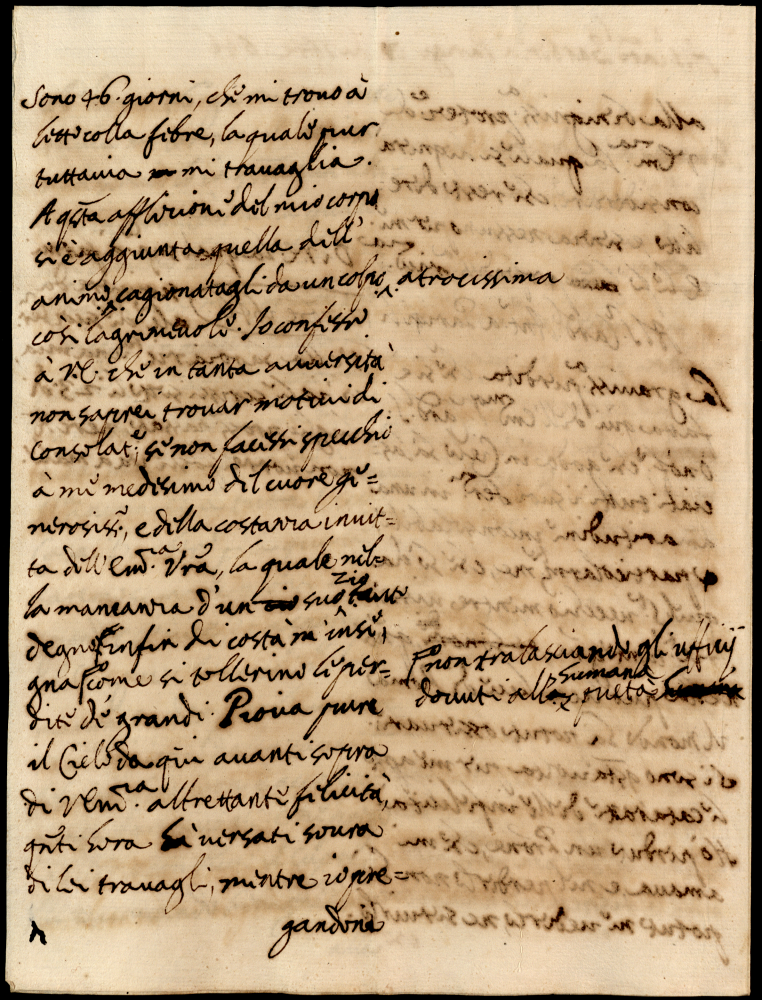 Sono 46. giorni, che mi trovo à
letto colla febre, la quale pur
tuttavia mi travaglia.
A qsta afflizione del mio corpo
si è aggiunta quella dell'
animo, cagionatagli da un colpo atrocissima
così lagrimevole. Io confesso
à V.E. che in tanta avversità
non saprei trovar motivi di
Consolat.e, se non facessi specchio
à me medesimo del cuore ge=
nerosiss.o, e della costanza invit=
ta dell'Em.a Vra, la quale nel=
la mancanza d'un suo zio
degno infin di costà m'inse=
gna come si tollerino le per=
dite de' grandi. Piova pure
il Cielo da qui avanti sopra
di V.Em.a altrettante felicità,
qnti hora hà versati sovra
di lei travagli, mentre io pre=
gandone
non tralasciando gli ufficij
dovuti alla humana pietà